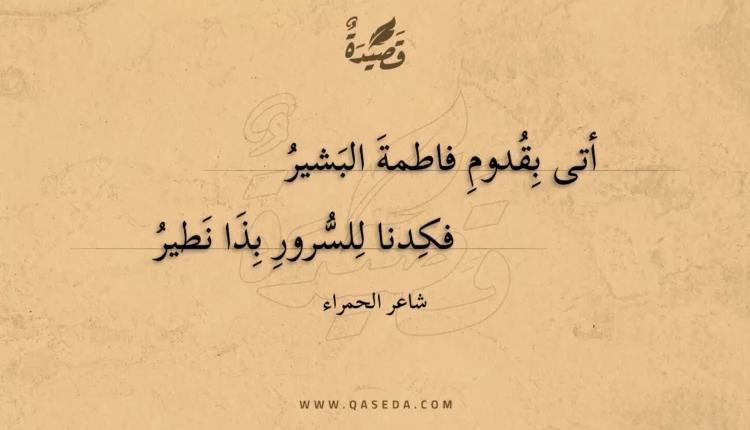 قَصِيْدَةٌ
أتى بِقُدومِ فاطمةَ البَشيرُ
فكِدنا لِلسُّرورِ بِذَا نَطيرُ
شاعر الحمراء
WWW.QASEDA.COM